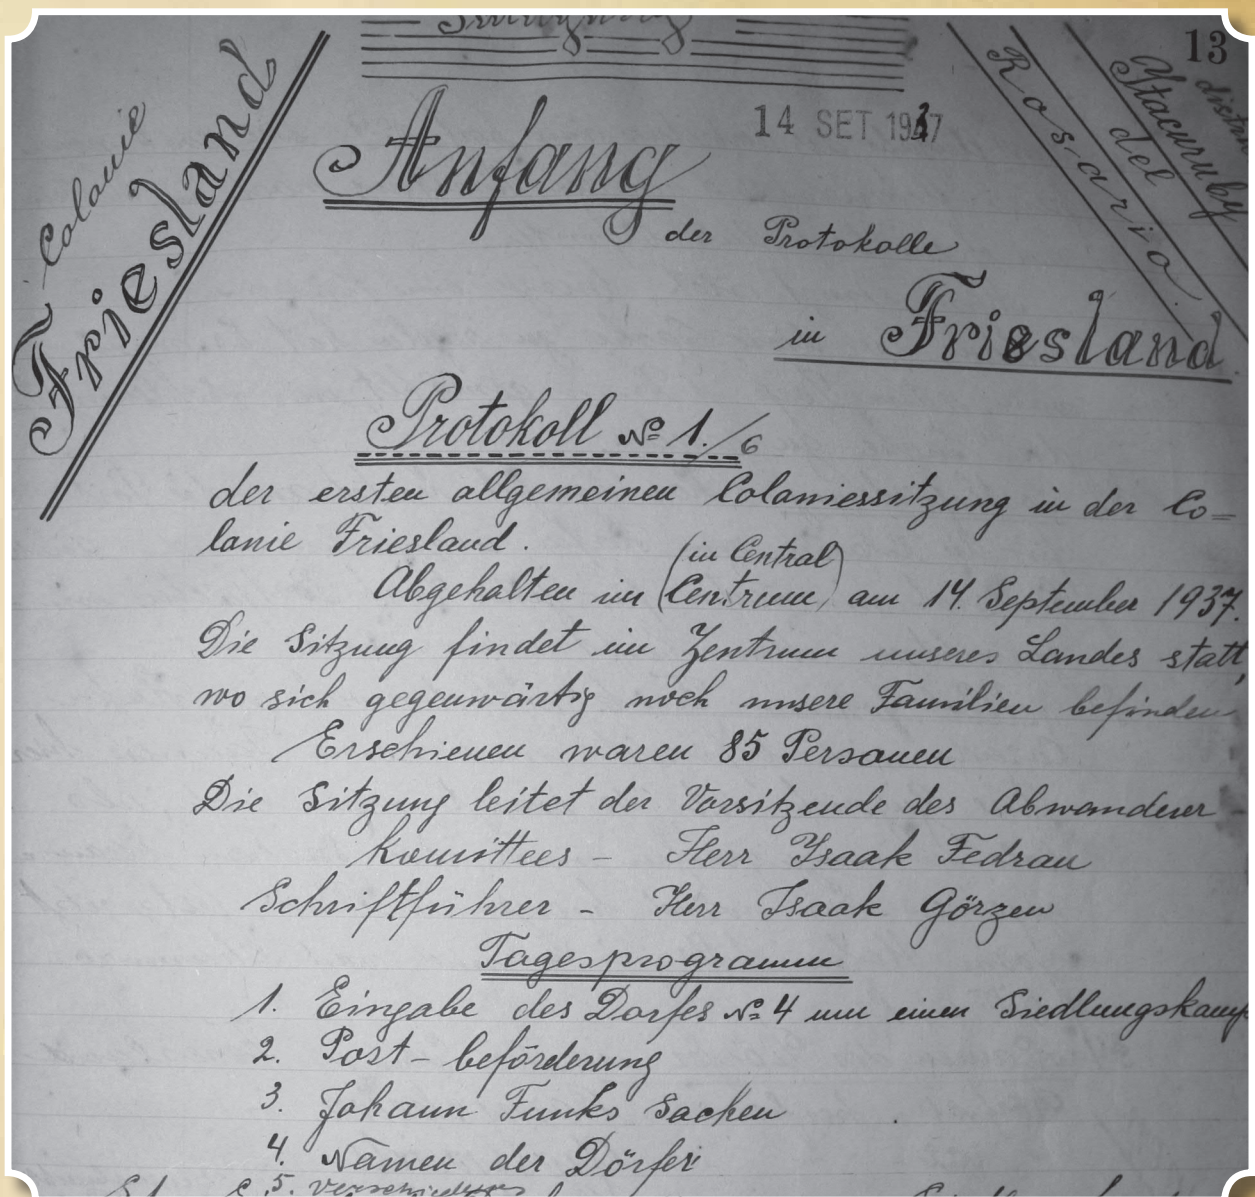 13
Colonie
Friesland
Rosario
del
Ytacuruby
14 SET 1937
Anfang
der Protokolle
in Friesland
Protokoll № 1./6
der ersten allgemeinen Coloniessitzung in der Co=
lonie Friesland.
(in Central)
Abgehalten im (Centrum) am 14. September 1937.
Die Sitzung findet im Zentrum unseres Landes statt,
wo sich gegenwärtig noch unsere Familien befinden
Erschienen waren 85 Personen
Die Sitzung leitet der Vorsitzende des Abwanderer-
komittees - Herr Isaak Fedrau
Schriftführer - Herr Isaak Görzen
Tagesprogramm
1. Eingabe des Dorfes № 4 um einen Siedlungskamp
2. Post-beförderung
3. Johann Funks Sachen
4. Namen der Dörfer
5.